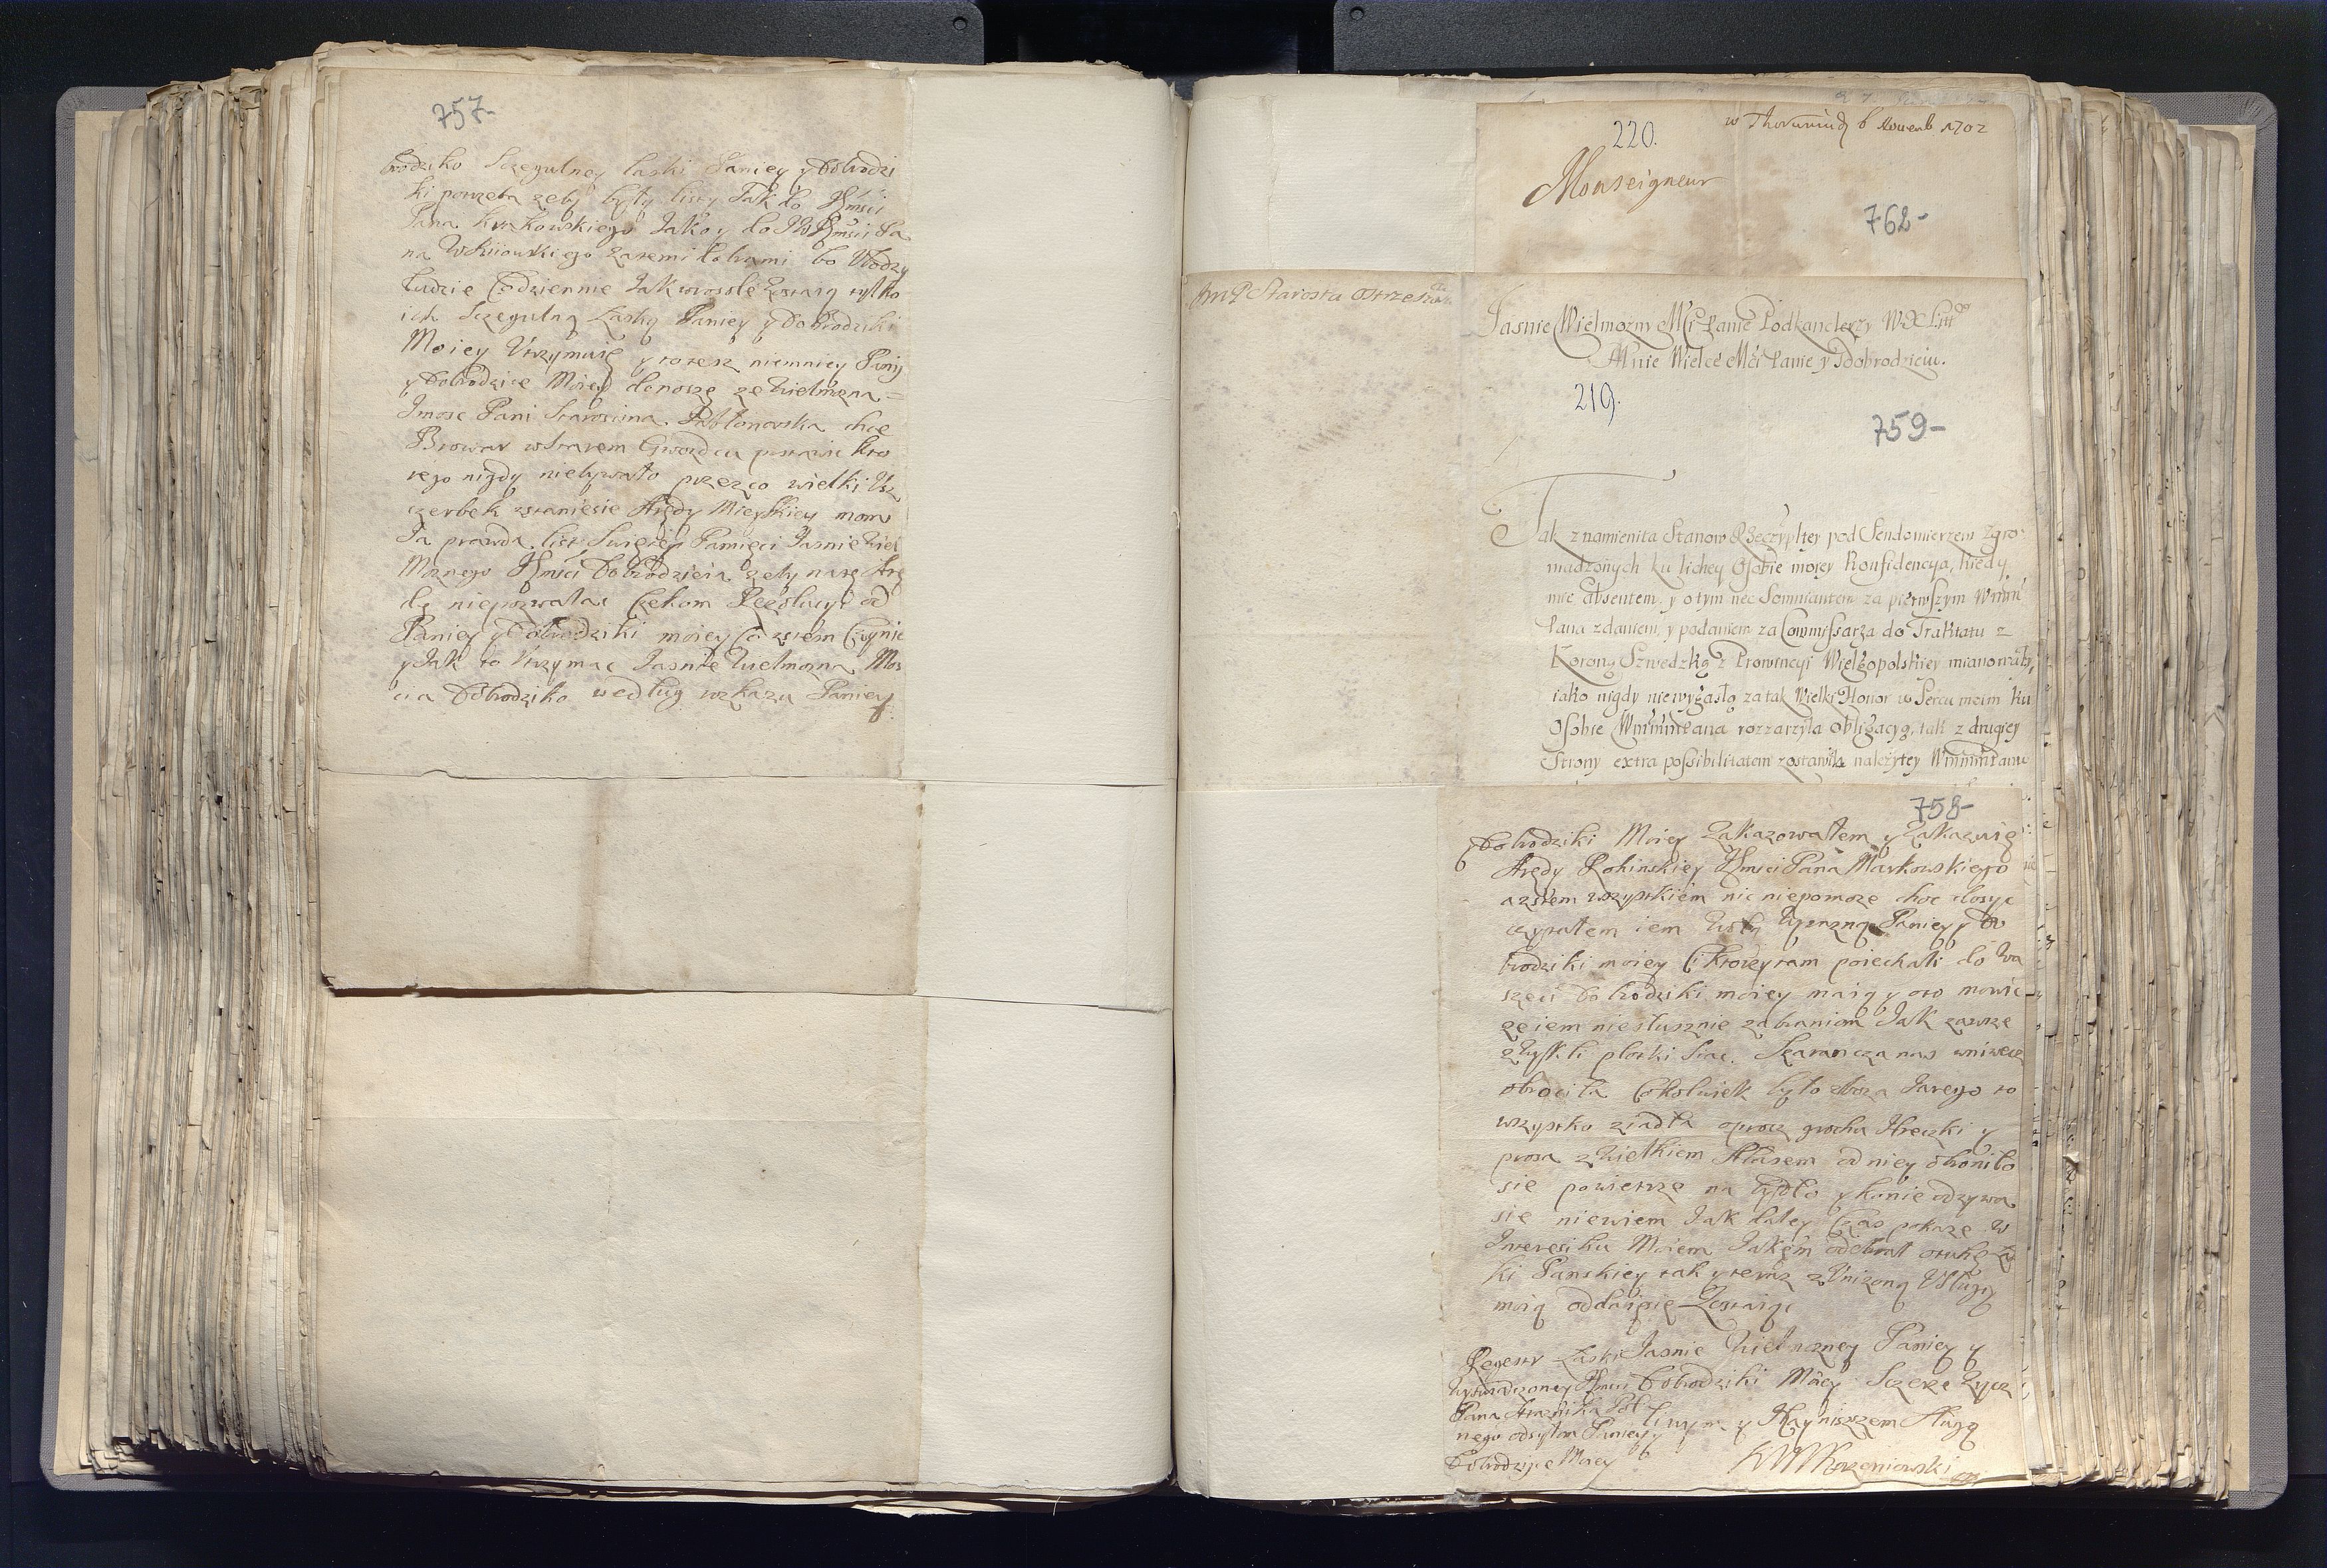 757-
brodziko Sczegulney laski Paniey y Dobrodzi
ki potrzeba zeby były listy Tak do JEmści
Pana Krakowskiego Jako y do JW JEmści Pa
na Wkiiowskiego zatemi dobrami bo Włodzy
ludzie Codziennie Jak
ich Sczegulną Łaską Paniey y Dobrodziki
Moiey Utrzymuię y toresz niemniey Paniy
y Dobrodzice Moiey donoszę ze Wielmozna
Jmosc Pani Starosina Jabłonowska chce
Browar wstarem Gwozdcu postawic kto
rego nigdy niebywało przezco wielki Usz
czerbek zstaniesie Arędy Mieyskiey mom
Ja prawda list Swiętey Pamięci Jasnie Wiel
Moznego JEmści Dobrodzieia zeby naszę Arę
dę niepozwalac Czekom Rezolucyi od
Paniey y Dobrodziki moiey Co zstem Czynic
y Jak to Utrzymac Jasnie Wielmozna Mos
cia Dobrodziko według wskazu Paniey
220.
w Thoruniu d 6 Nouemb. 1702
Monseigneur
762-
ImP Starosta Ostrzeszow
Jasnie Wielmozny Mći Panie Podkanclerzy WXLitt
Mnie Wielce Mći Panie y Dobrodzieiu.
219.
759-
Tak znamienita Stanow Rzeczyplitey pod Sendomierzem zgro
madzonych ku lichey Osobie moiey Konfidencya, kiedy
mie absentem, y o tym nec Somniantem za pierwszym
Pana zdaniem, y podaniem za Commissarza do Traktatu z
Koroną Szwedzką z Prowincyi Wielgopolskiey mianowały,
iako nigdy niewygasłą za tak Wielki Honor w Sercu moim ku
Osobie WmMMPana rozzarzyła obligacyą, tak z drugiey
Strony extra possibilitatem zostawiła należytey WmMMPanu
758-
y Dobrodziki Moiey Zakazowałem y Zakazuię
Arędy Rohinskiey JEmsci Pana Markowskiego
azstem wszystkiem nic niepomoze choc dosyc
czytałem iem Listy Wyrazną Paniey y Do
brodziki moiey Ci ktorzy tam poiechali do Wa
szeci Dobrodziki moiey maią y oto mowic
zeiem niesłusznie zabraniam Jak zawsze
zwykli plotki Siac. Szarancza nas wniwecz
obrociła Cokolwiek było zboza Jarego to
wszystko ziadła oprocz grochu Hreczki y
prosa zwielkiem Ałasem odniey obroniło
sie powietrze na bydło y konie odzywa
sie niewiem Jak daley Czas pokaze W
Interesiku Moiem Jakem odebrał otuhę Łas
ki Panskiey tak y teraz z Unizoną Usługą
moią oddaięsię Zostaiąc
Regestr Łaski Jasnie Wielmozney Paniey y
Wyswiadczoney JEmsci Dobrodziki Moiey Sczerze Zycz
Pana Straznika Pol liwym y Nayniszszem Sługą
nego odsyłam Paniey y
Dobrodziyce Moiey KWKorzeniowski